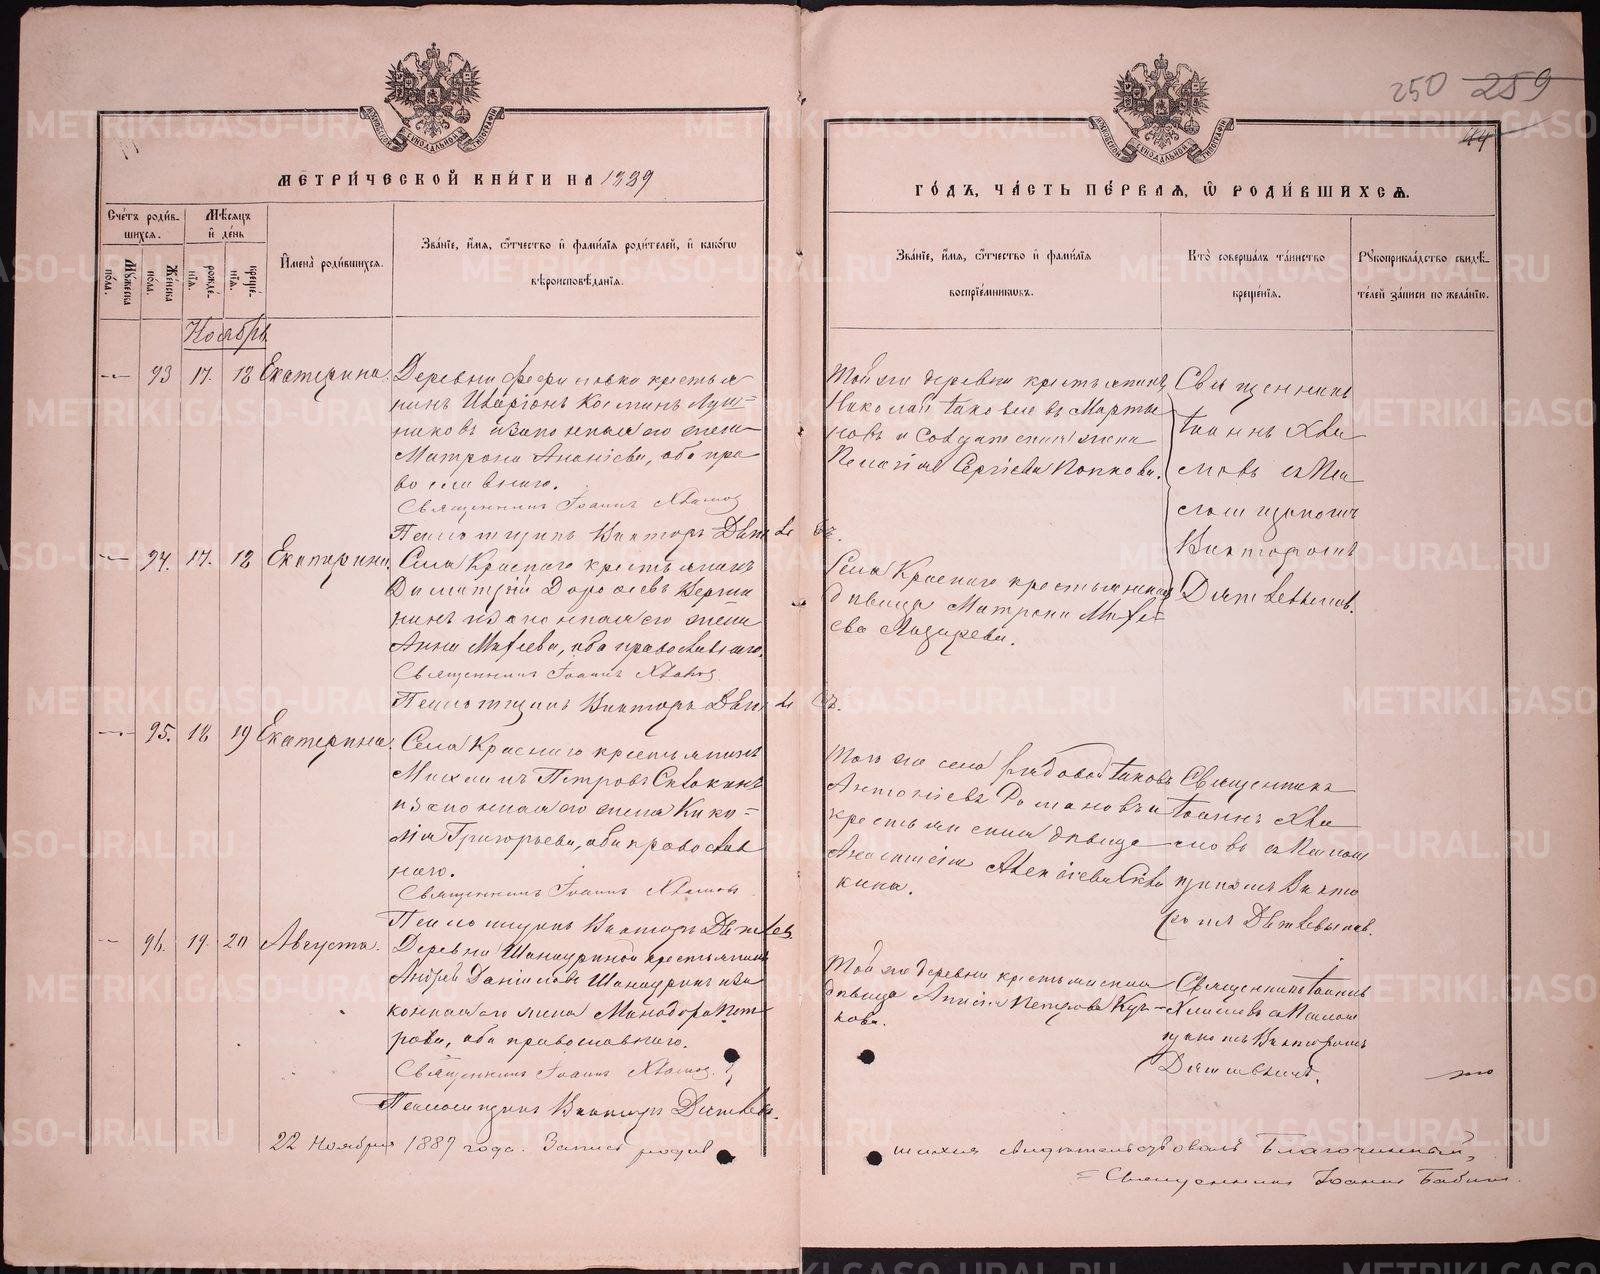 250 259
44
МЕТРИ́ЧЕСКОЙ КНИ́ГИ НА 1889
ГО́ДЪ, ЧА́СТЬ ПЕ́РВАЯ, Ѿ РОДИ́ВШИХСѦ.
Сче́тъ роди́в-
шихся.
Мѣ́сяцъ
и҆ де́нь
Му́жеска
по́ла.
Же́нска
по́ла.
рожде́-
нія.
креще́-
нія.
И҆мена̀ роди́вшихся.
Зва́ніе, и҆́мя, ѻ҆́тчество и҆ фами́лія роди́телей, и҆ како́гѡ
вѣроисповѣ́данія.
Зва́ніе, и҆́мя, ѻ҆́тчество и҆ фами́лія
воспріе́мникѡвъ.
Кто̀ соверша́лъ та́инство
креще́нія.
Рꙋкоприкла́дство свидѣ́-
телей за́писи по жела́нію.
Ноябрь
93 17. 18 Екатерина.
Деревни крестья
нинъ Иларіонъ Косминъ
никовъ и законная его жена
Матрона Ананіева, оба пра
вославнаго.
Священникъ Іоаннъ Хламовъ
Псаломщикъ Викторъ
Той же деревни крестьянинъ
Николай Іаковлевъ Марты
новъ и Солдатская жена
Пелагія Сергіева Попкова.
Священникъ
Іоаннъ Хла
мовъ съ Пса
ломщикомъ
Викторомъ
94. 17. 18 Екатерина.
Села Краснаго крестьянинъ
Димитрій Дорофеевъ
нинъ и законная его жена
Анна Матвеева, оба православнаго.
Священникъ Іоаннъ Хламовъ
Псаломщикъ Викторъ
Села Краснаго крестьянская
дѣвица Матрона Матве=
ева Лазарева.
95. 18. 19 Екатерина.
Села Краснаго крестьянинъ
Михаилъ Петровъ Сквокинъ
и законная его жена
Григорьева, оба православ
наго.
Священникъ Іоаннъ Хламовъ
Псаломщикъ Викторъ
Того же села рядовой Іаковъ
Антоніевъ Романовъ и
крестьянская дѣвица
Анастасія Алексіева Скво
кина.
Священникъ
Іоаннъ Хла
мовъ съ Псалом
щикомъ Викто
ромъ
96. 19. 20 Августа.
Деревни Шанауриной крестьянинъ
Андрей Даніиловъ Шанауринъ и за
конная его жена Минодора Пет
рова, оба православнаго.
Священникъ Іоаннъ Хламовъ.
Псаломщикъ Викторъ
Той же деревни крестьянская
дѣвица Анисія Петрова
кова.
Священникъ Іоаннъ
Хламовъ съ Псалом
щикомъ Викторомъ
22 Ноября 1889 года. Запись родив
шихся свидетельствовалъ Благочинный,
Священникъ Іоаннъ Бабинъ.